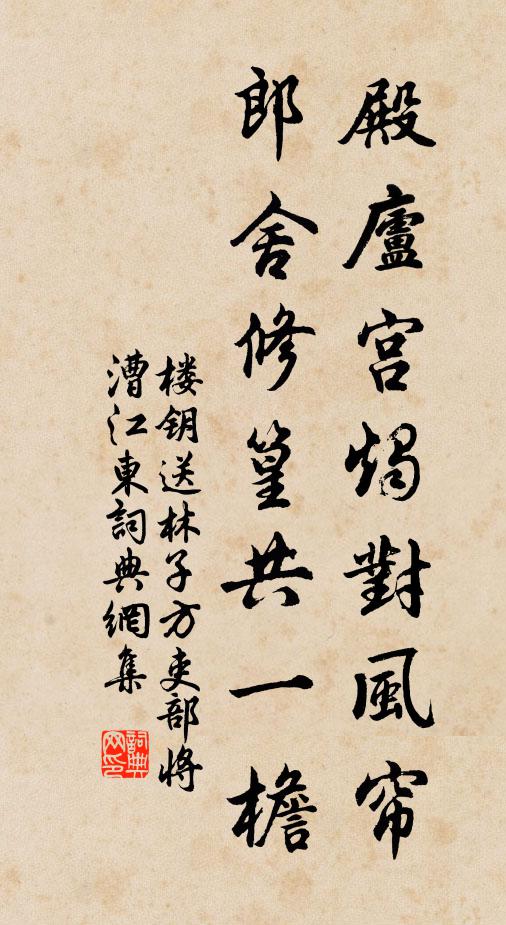 殿廬宫燭對風帘
郎舍修篁共一檐
楼钥送林子方吏部将
漕江東詞典網集
詞典
网印